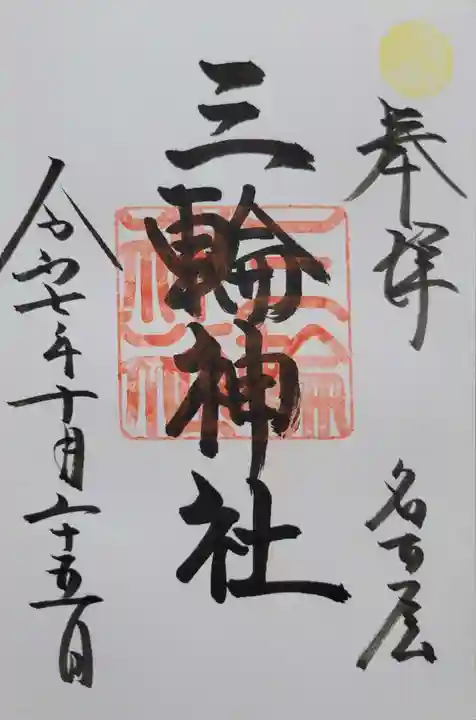 奉拝
名古屋
三輪神社
三輪神社
令和七年十月二十五日